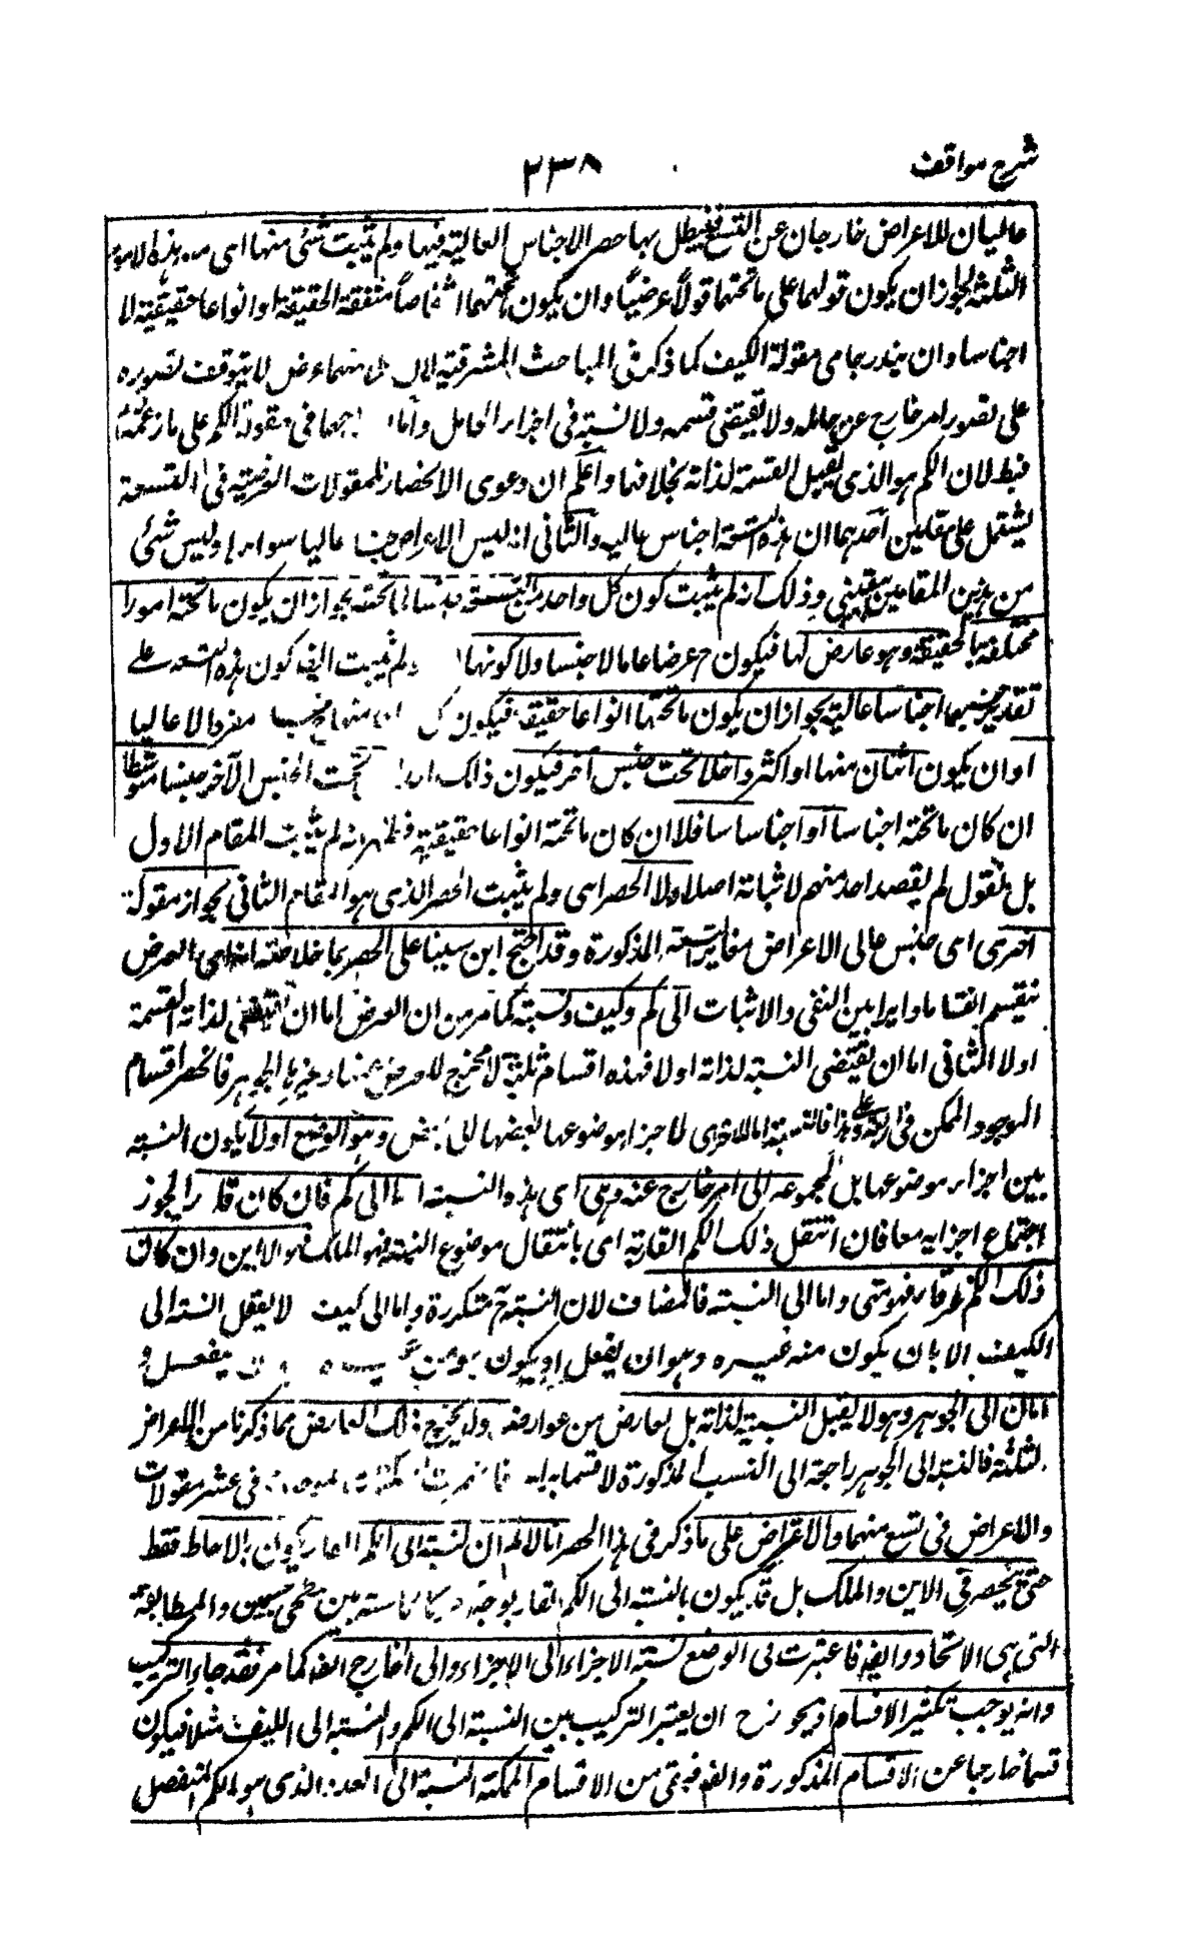 شرح مواقف
٢٣٨
عاليان للاعراض خارجان عن التسع فيبطل بها حصر الاجناس العالية فيها ولم يثبت شئ منها اى من هذه الامور
الثلثة لجواز ان يكون قولهما على ما تحتهما قولاً عرضياً وان يكون تحتهما اشخاصاً متفقة الحقيقة او انواعا حقيقية لا
اجناسا وان يندرجا فى مقولة الكيف كما ذكر فى المباحث المشرقية منهما عرض لا يتوقف تصوره
على تصور امر خارج عن حامله ولا تقيتضى قسمه ولا نسبة فى اجزاء الحامل واما فى مقولة الكم على ما زعمه
فبطلان الكم هو الذى يقبل القسمة لذاته بخلافها واعلم ان دعوى الانحصار للمقولات العرضية فى التسعة
يشتمل على مقامين احدهما ان هذه التسعة اجناس عالية والثانى انه ليس للاعراض جنسا عاليا سواها وليس شئ
من هذين المقامين بيقينى وذلك انه لم يثبت كون كل واحد من التسعة جنسا لما تحته لجواز ان يكون ما تحته امورا
مختلفة بالحقيقة وهو عارض لها فيكون ح عرضا عاما لا جنسا ولا كونها ولم يثبت ايضا كون هذه التسعة على
تقدير جنسيتها اجناسا عالية لجواز ان يكون ما تحتها انواعا حقيقة فيكون كل منها جنسا مفردا لا عاليا
او ان يكون اثنان منها او اكثر داخلا تحت جنس آخر فيكون ذلك تحت الجنس الآخر جنسا متوسطا
ان كان ما تحته اجناسا او اجناسا سافلا ان كان ما تحته انواعا حقيقية فظهر انه لم يثبت المقام الاول
بل نقول لم يقصد احد منهم لاثباته اصلا ولا الحصر اى ولم يثبت الحصر الذى هو المقام الثانى لجواز مقولة
اخرى اى جنس عالى الاعراض مغاير للتسعة المذكورة وقد احتج ابن سينا على الحصر بما خلاصته انه اى العرض
ينقسم انقساما دايرا بين النفى والاثبات الى كم وكيف ونسبة كما مر من ان العرض اما ان يقتضى لذاته القسمة
اولا الثانى اما ان يقتضى النسبة لذاته اولا فهذه اقسام ثلثة لا مخرج للعرض عنها وغيرها الجوهر فانحصر اقسام
الموجود الممكن فى اربعة وعلى هذا فالنسبة اما للاجزاء لاجزاء موضوعها بعضها الى بعض وهو الوضع اولا يكون النسبة
بين اجزاء موضوعها بل لمجموعه الى امر خارج عنه وهى اى هذه النسبة اما الى كم فان كان قارا يجوز
اجتماع اجزايه معا فان انتقل ذلك الكم القار به اى بانتقال موضوع النسبة فهو الملك فهو الاين وان كان
ذلك الكم غير قار فهو متى واما الى النسبة فالمضاف لان النسبة ح متكررة واما الى كيف لا يعقل النسبة الى
الكيف الا بان يكون منه غيره وهو ان يفعل او يكون هو من غيره ينفعل
اما ان الى الجوهر وهو لا يقبل النسبة لذاته بل لعارض من عوارضه ولا يخرج ذلك العارض مما ذكرنا من الاعراض
الثلثة فالنسبة الى الجوهر راجعة الى النسب المذكورة لا قسما براسه فى عشر مقولات
والاعراض فى تسع منها والاعتراض على ما ذكر فى هذا الحصر انا لا نسلم ان النسبة الى الكم القار يكون بالاحاطة فقط
حتى ينحصر فى الاين والملك بل قد يكون بالنسبة الى الكم القار بوجه كالماسة بين سطحى جسمين والمطابقة
التى هى الاتحاد وايضا فاعتبرت فى الوضع نسبة الاجزاء الى الاجزاء والى الخارج ايضا كما مر فقد جاء التركيب
وانه يوجب تكثير الاقسام اذ يجوز ح ان يعتبر التركيب بين النسبة الى الكم والنسبة الى الكيف مثلا فيكون
قسما خارجا عن الاقسام المذكورة وايضا فبقى من الاقسام الممكنة النسبة الى العدد الذى هو الكم المنفصل